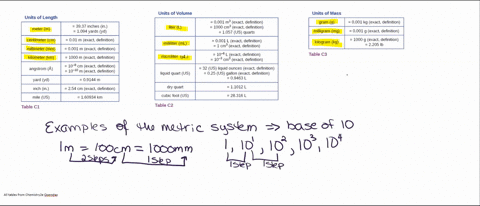 Units of Length
meter (m) = 39.37 inches (in.)
= 1.094 yards (yd)
centimeter (cm) = 0.01 m (exact, definition)
millimeter (mm) = 0.001 m (exact, definition)
kilometer (km) = 1000 m (exact, definition)
angstrom (Å) = 10⁻⁸ cm (exact, definition)
= 10⁻¹⁰ m (exact, definition)
yard (yd) = 0.9144 m
inch (in.) = 2.54 cm (exact, definition)
mile (US) = 1.60934 km
Table C1
Units of Volume
liter (L) = 0.001 m³ (exact, definition)
= 1000 cm³ (exact, definition)
= 1.057 (US) quarts
milliliter (mL) = 0.001 L (exact, definition)
= 1 cm³ (exact, definition)
microliter (μL) = 10⁻⁶ L (exact, definition)
= 10⁻³ cm³ (exact, definition)
liquid quart (US) = 32 (US) liquid ounces (exact, definition)
= 0.25 (US) gallon (exact, definition)
= 0.9463 L
dry quart = 1.1012 L
cubic foot (US) = 28.316 L
Table C2
Units of Mass
gram (g) = 0.001 kg (exact, definition)
milligram (mg) = 0.001 g (exact, definition)
kilogram (kg) = 1000 g (exact, definition)
= 2.205 lb
Table C3
Examples of the metric system ⇒ base of 10
1m = 100cm = 1000mm 1, 10¹, 10², 10³, 10⁴
2steps 1step 1step 1step